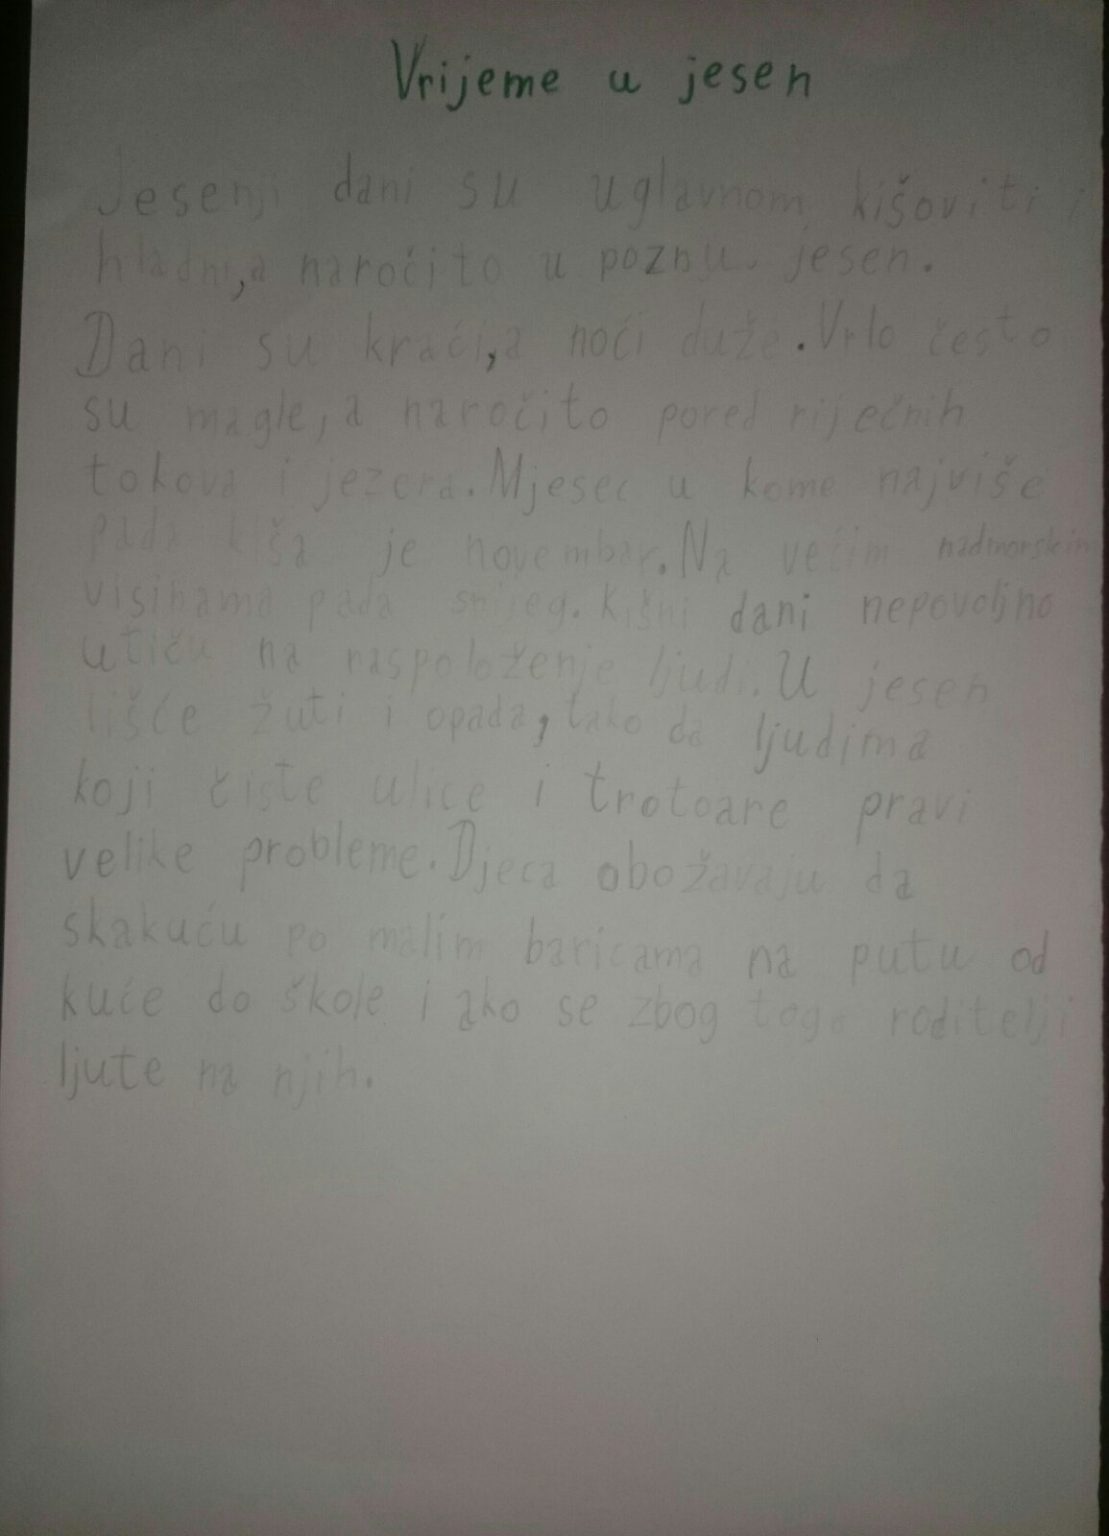 Vrijeme u jesen
Jesenji dani su uglavnom kišoviti i
hladni,a naročito u poznu jesen.
Dani su kraći,a noći duže.Vrlo često
su magle,a naročito pored riječnih
tokova i jezera.Mjesec u kome najviše
pada kiša je novembar.Na većim nadmorskim
visinama pada snijeg.Kišni dani nepovoljno
utiču na raspoloženje ljudi.U jesen
lišće žuti i opada,tako da ljudima
koji čiste ulice i trotoare pravi
velike probleme.Djeca obožavaju da
skakuću po malim baricama na putu od
kuće do škole i ako se zbog toga roditelji
ljute na njih.